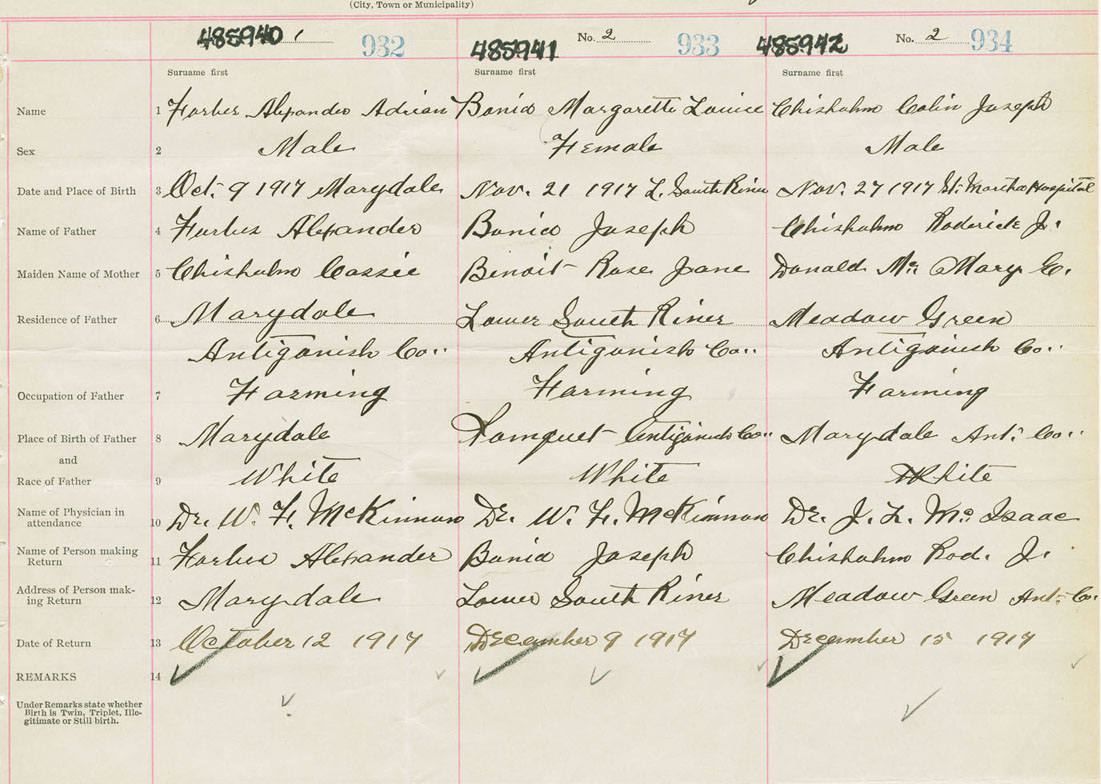 (City, Town or Municipality)
485940 1 932 485941 No. 2 933 485942 No. 2 934
Surname first Surname first Surname first
Name 1 Forbes Alexander Adrian Bonia Margarette Louise Chisholm Colin Joseph
Sex 2 Male Female Male
Date and Place of Birth 3 Oct. 9 1917 Marydale Nov. 21 1917 L. South River Nov. 27 1917 St. Martha Hospital
Name of Father 4 Forbes Alexander Bonia Joseph Chisholm Roderick J.
Maiden Name of Mother 5 Chisholm Cassie Benoit Rose Jane Donald Mc Mary E.
Residence of Father 6 Marydale Lower South River Meadow Green
Antigonish Co.. Antigonish Co.. Antigonish Co..
Occupation of Father 7 Farming Farming Farming
Place of Birth of Father 8 Marydale Pomquet Antigonish Co.. Marydale Ant. Co..
and
Race of Father 9 White White White
Name of Physician in
attendance 10 Dr. W. F. McKinnon Dr. W. F. McKinnon Dr. J. L. Mc Isaac
Name of Person making
Return 11 Forbes Alexander Bonia Joseph Chisholm Rod. J.
Address of Person mak-
ing Return 12 Marydale Lower South River Meadow Green Ant. Co.
Date of Return 13 October 12 1917 December 9 1917 December 15 1917
REMARKS 14
Under Remarks state whether
Birth is Twin, Triplet, Ille-
gitimate or Still birth.